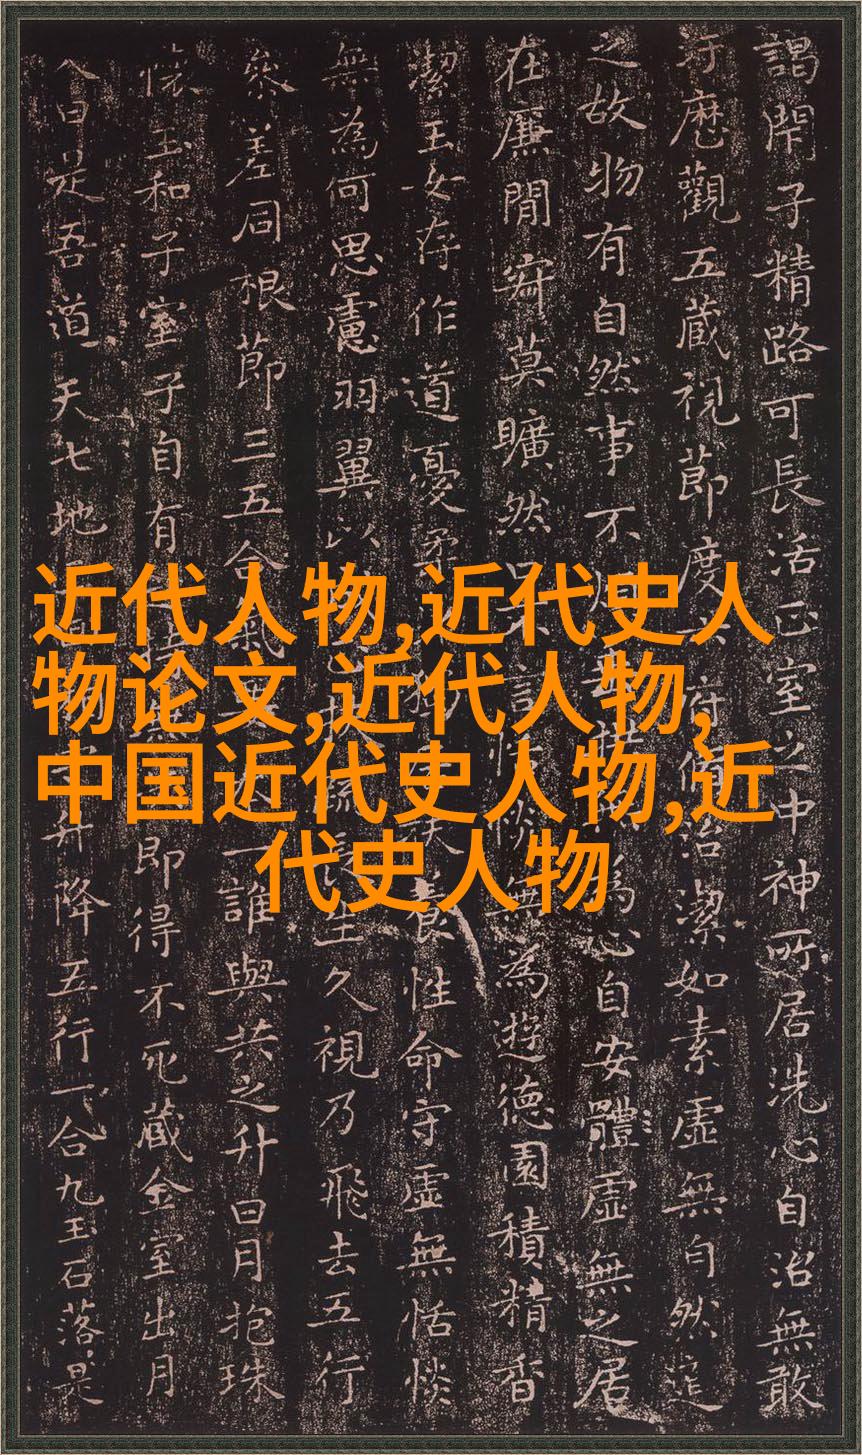 近代人物,近代史人
物论文,近代人物,
中国近代史人物,近
代史人物
子精路可長活正室之中神所居洗心自治無敢
歷觀五藏視節度府脩治潔如素虛無自然道
之故物有自然事不為心自安體虛無之居
在廉間寂莫曠然不言恬惔無為遊德園積精香
潔玉女存作道憂柔性命守虛無恬惔
無為何思慮羽翼以生久視乃飛去五行
參差同根節三五合氣一誰與共之升日月抱珠
懷玉和子室子自有即得不死藏金室出月
入日是吾道天七地升降五行一合九玉石落是